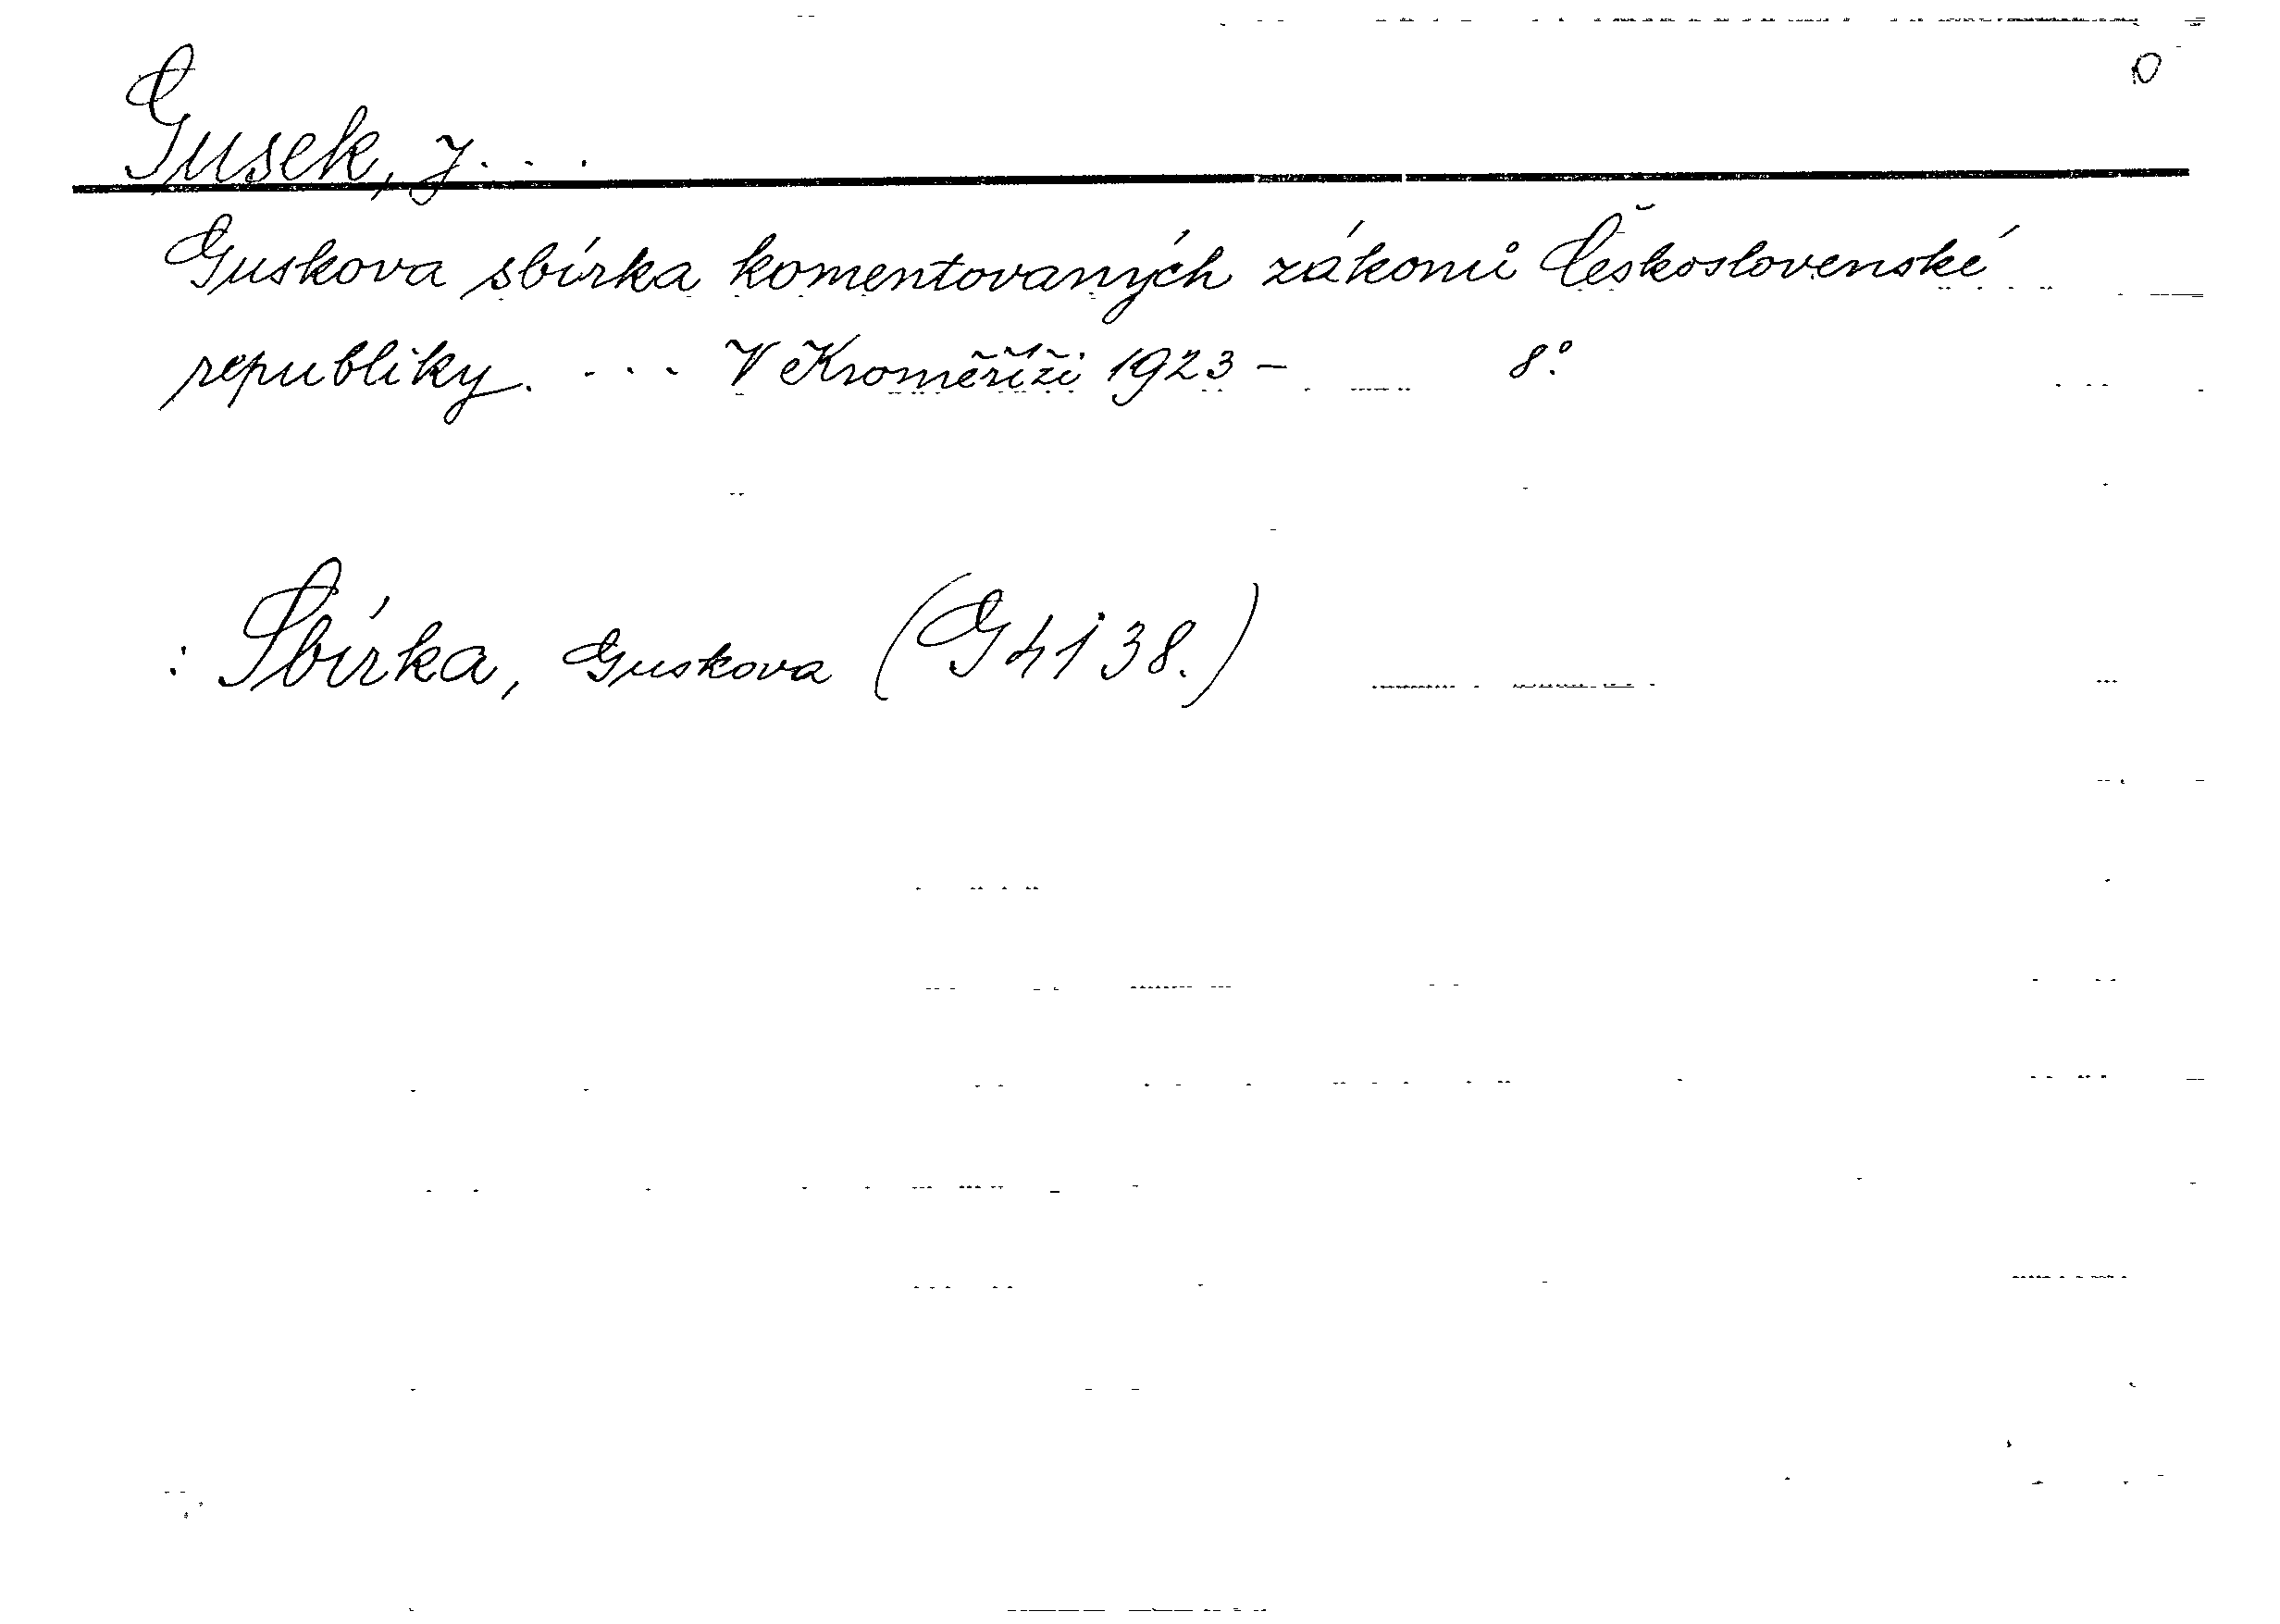 O
Gusek, J. . .
Guskova sbírka komentovaných zákonů Československé
republiky. . . . V Kroměříži 1923 – 8°.
: Sbírka, Guskova (G 4138.)